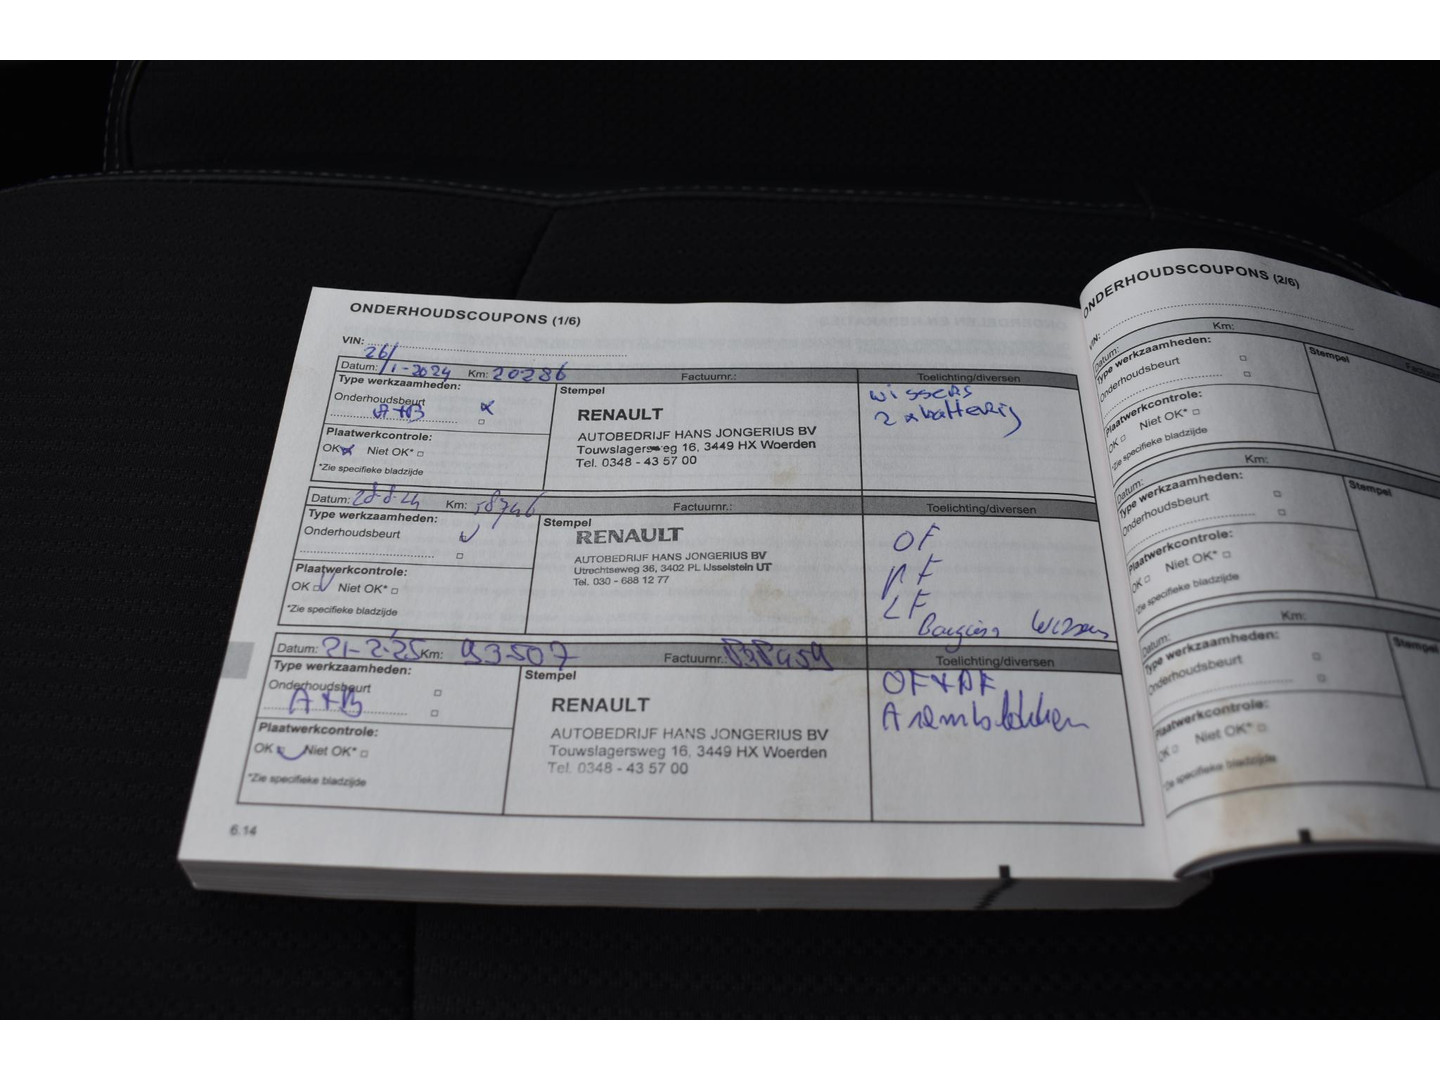 ONDERHOUDSCOUPONS (1/6)
VIN:
Datum: 26/1-2024 Km: 20286 Factuurnr.: Toelichting/diversen
Type werkzaamheden:
Onderhoudsbeurt
A+B
Plaatwerkcontrole:
OK Niet OK*
*Zie specifieke bladzijde
Stempel
RENAULT
AUTOBEDRIJF HANS JONGERIUS BV
Touwslagersweg 16, 3449 HX Woerden
Tel. 0348 - 43 57 00
wissers
2 x batterij
Datum: 28-8-24 Km: 58746 Factuurnr.: Toelichting/diversen
Type werkzaamheden:
Onderhoudsbeurt
Plaatwerkcontrole:
OK Niet OK*
*Zie specifieke bladzijde
Stempel
RENAULT
AUTOBEDRIJF HANS JONGERIUS BV
Utrechtseweg 36, 3402 PL IJsselstein UT
Tel. 030 - 688 12 77
OF
LF
Wissers
Datum: 21-2-25 Km: 93507 Factuurnr.: Toelichting/diversen
Type werkzaamheden:
Onderhoudsbeurt
A+B
Plaatwerkcontrole:
OK Niet OK*
*Zie specifieke bladzijde
Stempel
RENAULT
AUTOBEDRIJF HANS JONGERIUS BV
Touwslagersweg 16, 3449 HX Woerden
Tel. 0348 - 43 57 00
6.14
ONDERHOUDSCOUPONS (2/6)
VIN:
Datum: Km:
Type werkzaamheden:
Onderhoudsbeurt
Stempel
Plaatwerkcontrole:
OK Niet OK*
*Zie specifieke bladzijde
Datum: Km:
Type werkzaamheden:
Onderhoudsbeurt
Stempel
Plaatwerkcontrole:
OK Niet OK*
*Zie specifieke bladzijde
Datum: Km:
Type werkzaamheden:
Onderhoudsbeurt
Stempel
Plaatwerkcontrole:
OK Niet OK*
*Zie specifieke bladzijde